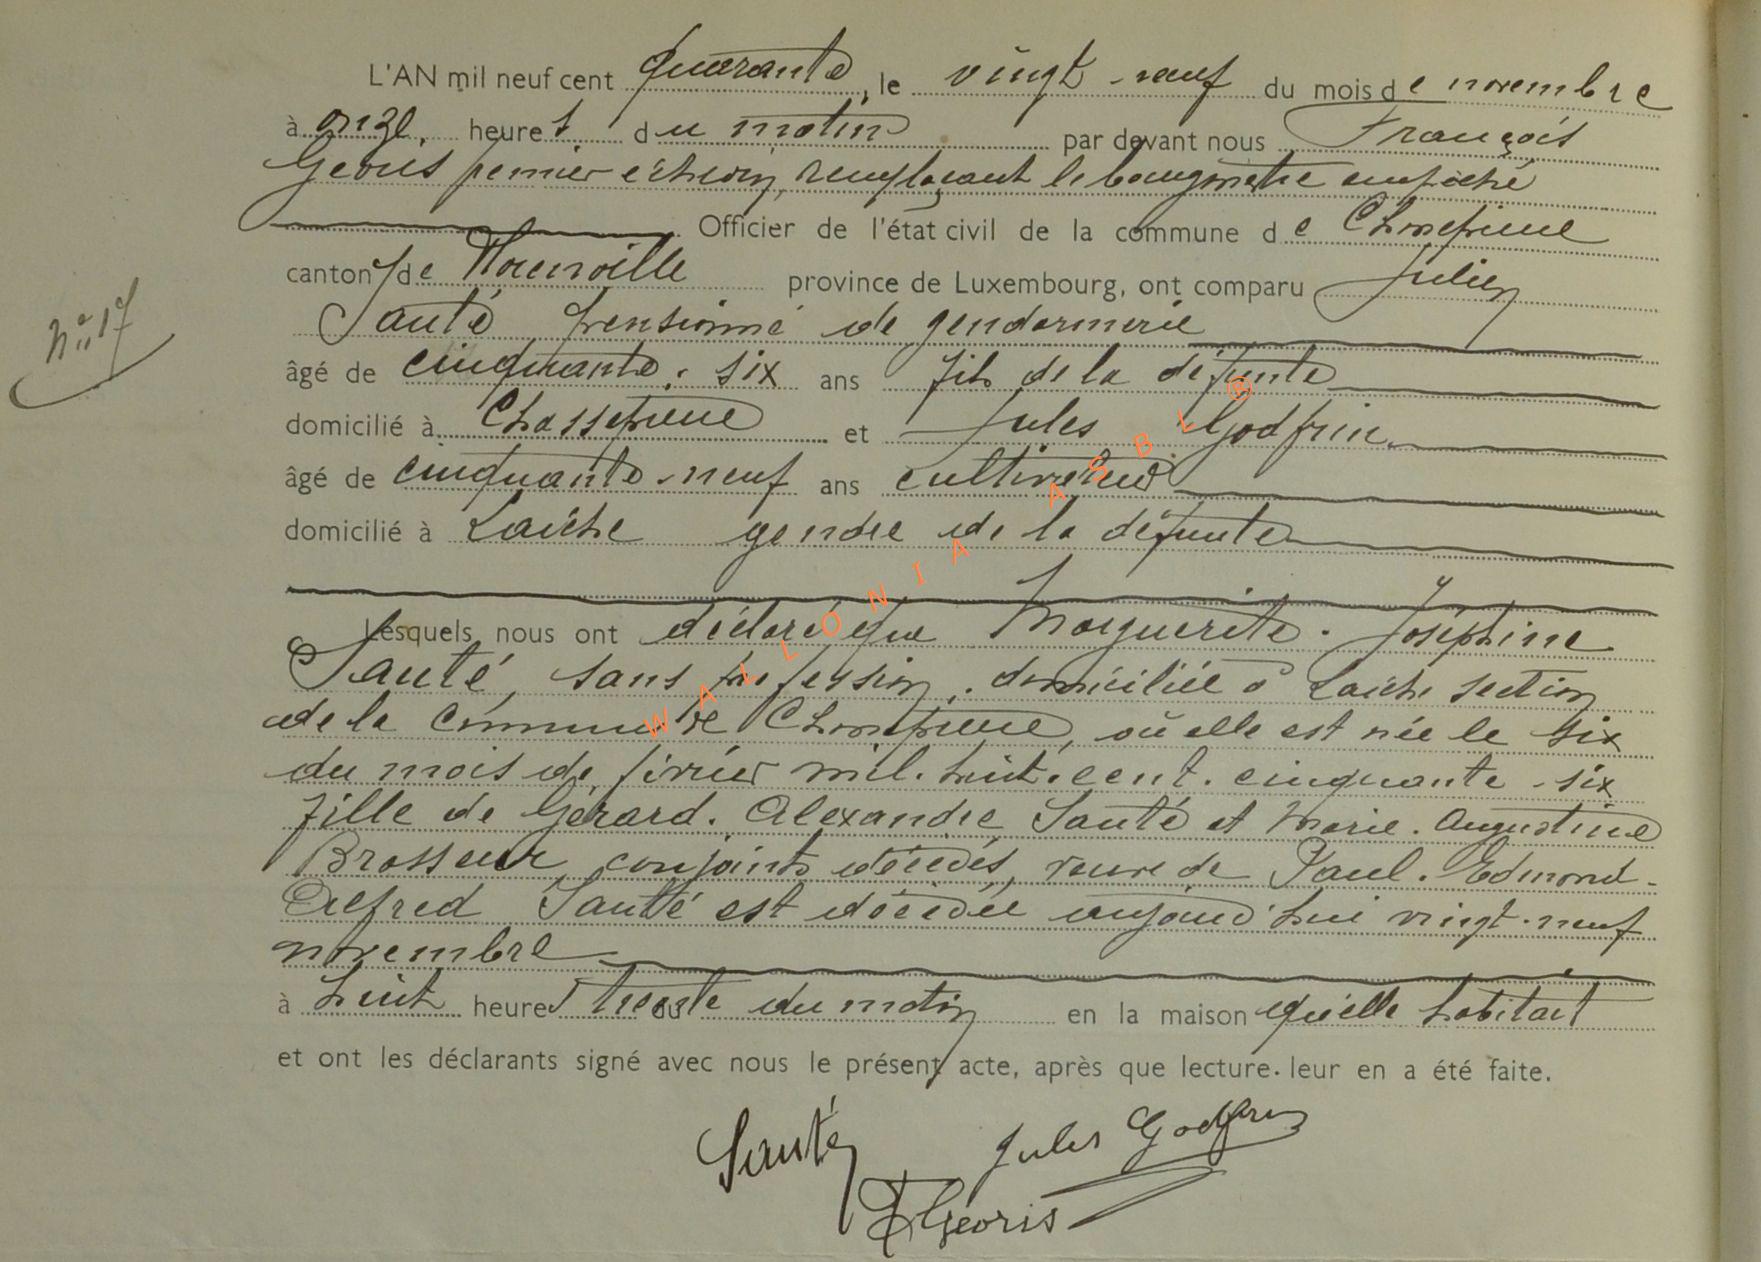 L'AN mil neuf cent quarante, le vingt-neuf du mois de novembre
à onze heures du matin par devant nous François
Georis premier échevin, remplaçant le bourgmestre empêché
Officier de l'état civil de la commune de Chassepierre
canton de Florenville province de Luxembourg, ont comparu Julien
Santé pensionné de gendarmerie
âgé de cinquante-six ans fils de la défunte
domicilié à Chassepierre et Jules Godfrin
âgé de cinquante-neuf ans cultivateur
domicilié à Laiche gendre de la défunte
Lesquels nous ont déclaré que Marguerite-Joséphine
Santé, sans profession, domiciliée à Laiche section
de la commune de Chassepierre, où elle est née le six
du mois de février mil-huit-cent-cinquante-six
fille de Gérard-Alexandre Santé et Marie-Augustine
Brasseur, conjoints décédés, veuve de Paul-Edmond-
Alfred Santé est décédée aujourd'hui vingt-neuf
novembre
à huit heures trente du matin en la maison qu'elle habitait
et ont les déclarants signé avec nous le présent acte, après que lecture leur en a été faite.
Santé Jules Godfrin
F Georis
N° 17
WALLONIA ASBL ®